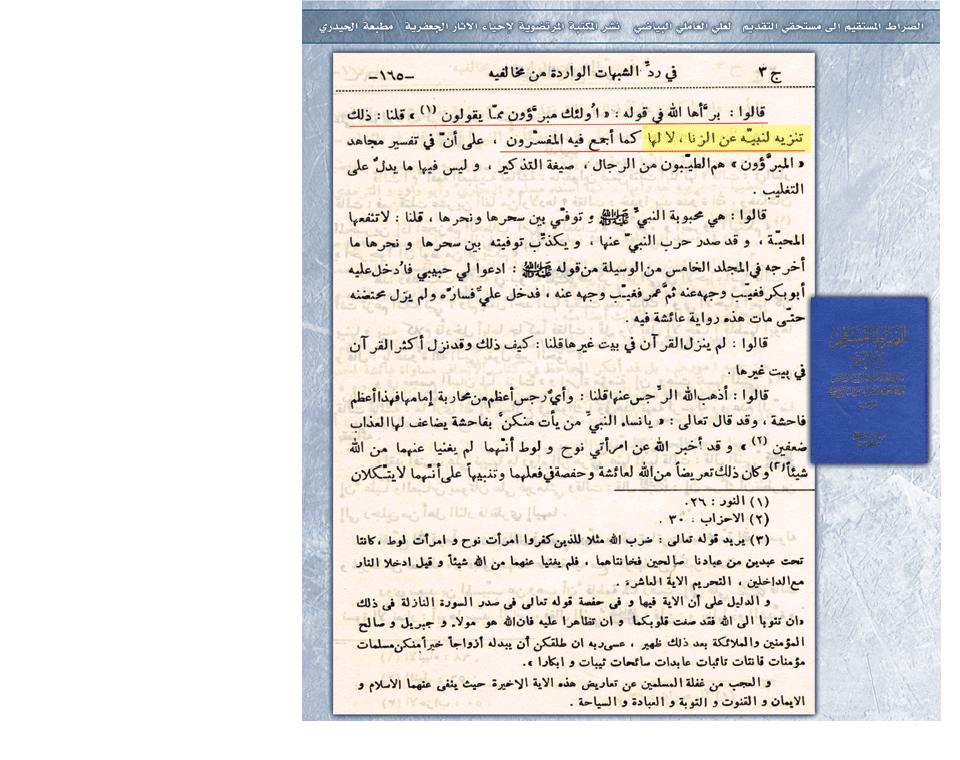 الصراط المستقيم الى مستحقي التقديم لعلي العاملي البياضي نشر المكتبة المرتضوية لاحياء الاثار الجعفرية مطبعة الحيدري
ج ٣ في ردِّ الشبهات الواردة من مخالفيه -١٦٥-
قالوا : برَّأها الله في قوله : « اُولئك مبرَّؤون ممّا يقولون (١) » قلنا : ذلك
تنزيه لنبيّه عن الزنا ، لا لها كما أجمع فيه المفسّرون ، على أنّ في تفسير مجاهد
« المبرَّؤون » هم الطيّبون من الرجال ، صيغة التذكير ، و ليس فيها ما يدلُّ على
التغليب .
قالوا : هي محبوبة النبيِّ ﷺ و توفّي بين سحرها ونحرها ، قلنا : لا تنفعها
المحبّة ، و قد صدر حرب النبيّ عنها ، و يكذّب توفيته بين سحرها و نحرها ما
أخرجه في المجلد الخامس من الوسيلة من قوله ﷺ : ادعوا لي حبيبي فاُدخل عليه
أبو بكر فغيّب وجهه عنه ثمَّ عمر فغيّب وجهه عنه ، فدخل عليٌّ فسارّه ولم يزل محتضنه
حتّى مات هذه رواية عائشة فيه .
قالوا : لم ينزل القرآن في بيت غيرها قلنا : كيف ذلك وقد نزل أكثر القرآن
في بيت غيرها .
قالوا : أذهب الله الرِّجس عنها قلنا : وأيُّ رجس أعظم من محاربة إمامها فهذا أعظم
فاحشة ، وقد قال تعالى : « يا نساء النبيِّ من يأت منكنَّ بفاحشة يضاعف لها العذاب
ضعفين (٢) » و قد أخبر الله عن امرأتي نوح و لوط أنّهما لم يغنيا عنهما من الله
شيئاً (٣) وكان ذلك تعريضاً من الله لعائشة وحفصة في فعلهما وتنبيهاً على أنّهما لا يتّكلان
(١) النور : ٢٦.
(٢) الاحزاب : ٣٠ .
(٣) يريد قوله تعالى : ضرب الله مثلا للذين كفروا امرأت نوح و امرأت لوط ، كانتا
تحت عبدين من عبادنا صالحين فخانتاهما ، فلم يغنيا عنهما من الله شيئاً و قيل ادخلا النار
مع الداخلين ، التحريم الاية العاشرة .
و الدليل على أن الاية فيها و فى حفصة قوله تعالى فى صدر السورة النازلة فى ذلك
«ان تتوبا الى الله فقد صغت قلوبكما و ان تظاهرا عليه فان الله هو مولاه و جبريل و صالح
المؤمنين والملائكة بعد ذلك ظهير ، عسى ربه ان طلقكن أن يبدله أزواجاً خيراً منكن مسلمات
مؤمنات قانتات تائبات عابدات سائحات ثيبات و ابكارا ».
و العجب من غفلة المسلمين عن تعاريض هذه الاية الاخيرة حيث ينفى عنهما الاسلام و
الايمان و القنوت و التوبة و العبادة و السياحة .